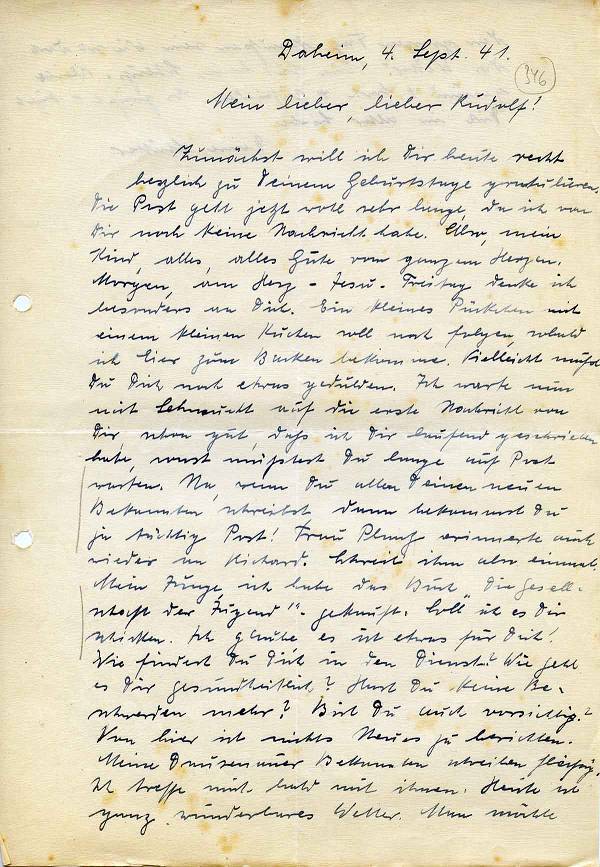 Daheim, 4. Sept. 41.
346
Mein lieber, lieber Rudolf!
Zunächst will ich Dir heute recht
herzlich zu Deinem Geburtstage gratulieren.
Die Post geht jetzt wohl sehr lange, da ich von
Dir noch keine Nachricht habe. Also, mein
Kind, alles, alles Gute von ganzem Herzen.
Morgen, am Herz-Jesu-Freitag denke ich
besonders an Dich. Ein kleines Päckchen mit
einem kleinen Kuchen soll noch folgen, sobald
ich hier zum Backen bekomme. Vielleicht mußt
Du Dich noch etwas gedulden. Ich warte nun
mit Sehnsucht auf die erste Nachricht von
Dir, schon gut, daß ich Dir laufend geschrieben
habe, sonst müßtest Du lange auf Post
warten. Na, wenn Du allen Deinen neuen
Bekannten schreibst, dann bekommst Du
ja tüchtig Post! Frau erinnerte auch
wieder an Richard. Schreib ihm also einmal.
Mein Junge, ich habe das Buch „Die Gesell-
schaft der Jugend" gekauft. Soll ich es Dir
schicken. Ich glaube es ist etwas für Dich!
Wie findest Du Dich in den Dienst? Wie geht
es Dir gesundheitlich? Hast Du keine Be-
schwerden mehr? Bist Du auch vorsichtig?
Von hier ist nichts Neues zu berichten.
Meine Bekannten schreiben fleißig.
Ich treffe mich bald mit ihnen. Heute ist
ganz wunderbares Wetter. Man möchte